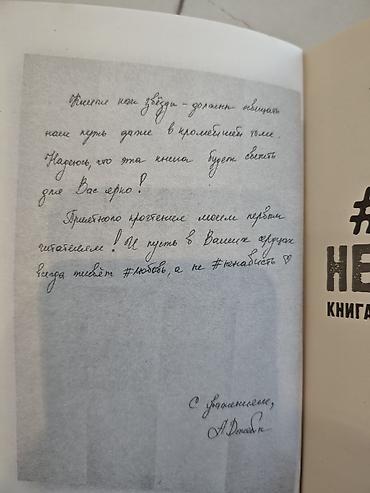 Книги как звёзды - должны освещать
нам путь даже в кромешной тьме.
Надеюсь, что эта книга будет светить
для Вас ярко!
Приятного прочтения моим первым
читателям! И пусть в Ваших сердцах
всегда живёт #любовь, а не #ненависть ♡
С уважением,
#
НЕ
КНИГА